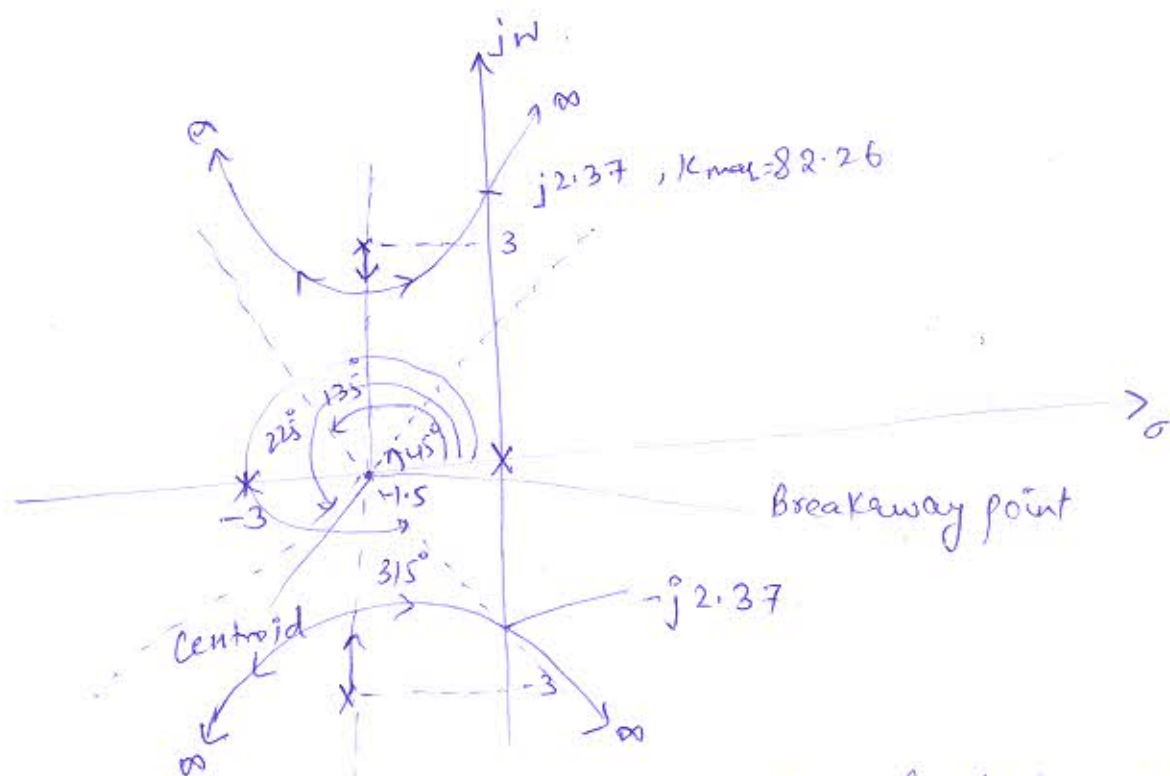 jw
∞
j2.37, Kmax=82.26
3
135°
225°
45°
σ
-3
-1.5
Breakaway point
315°
-j2.37
Centroid
-3
∞
∞